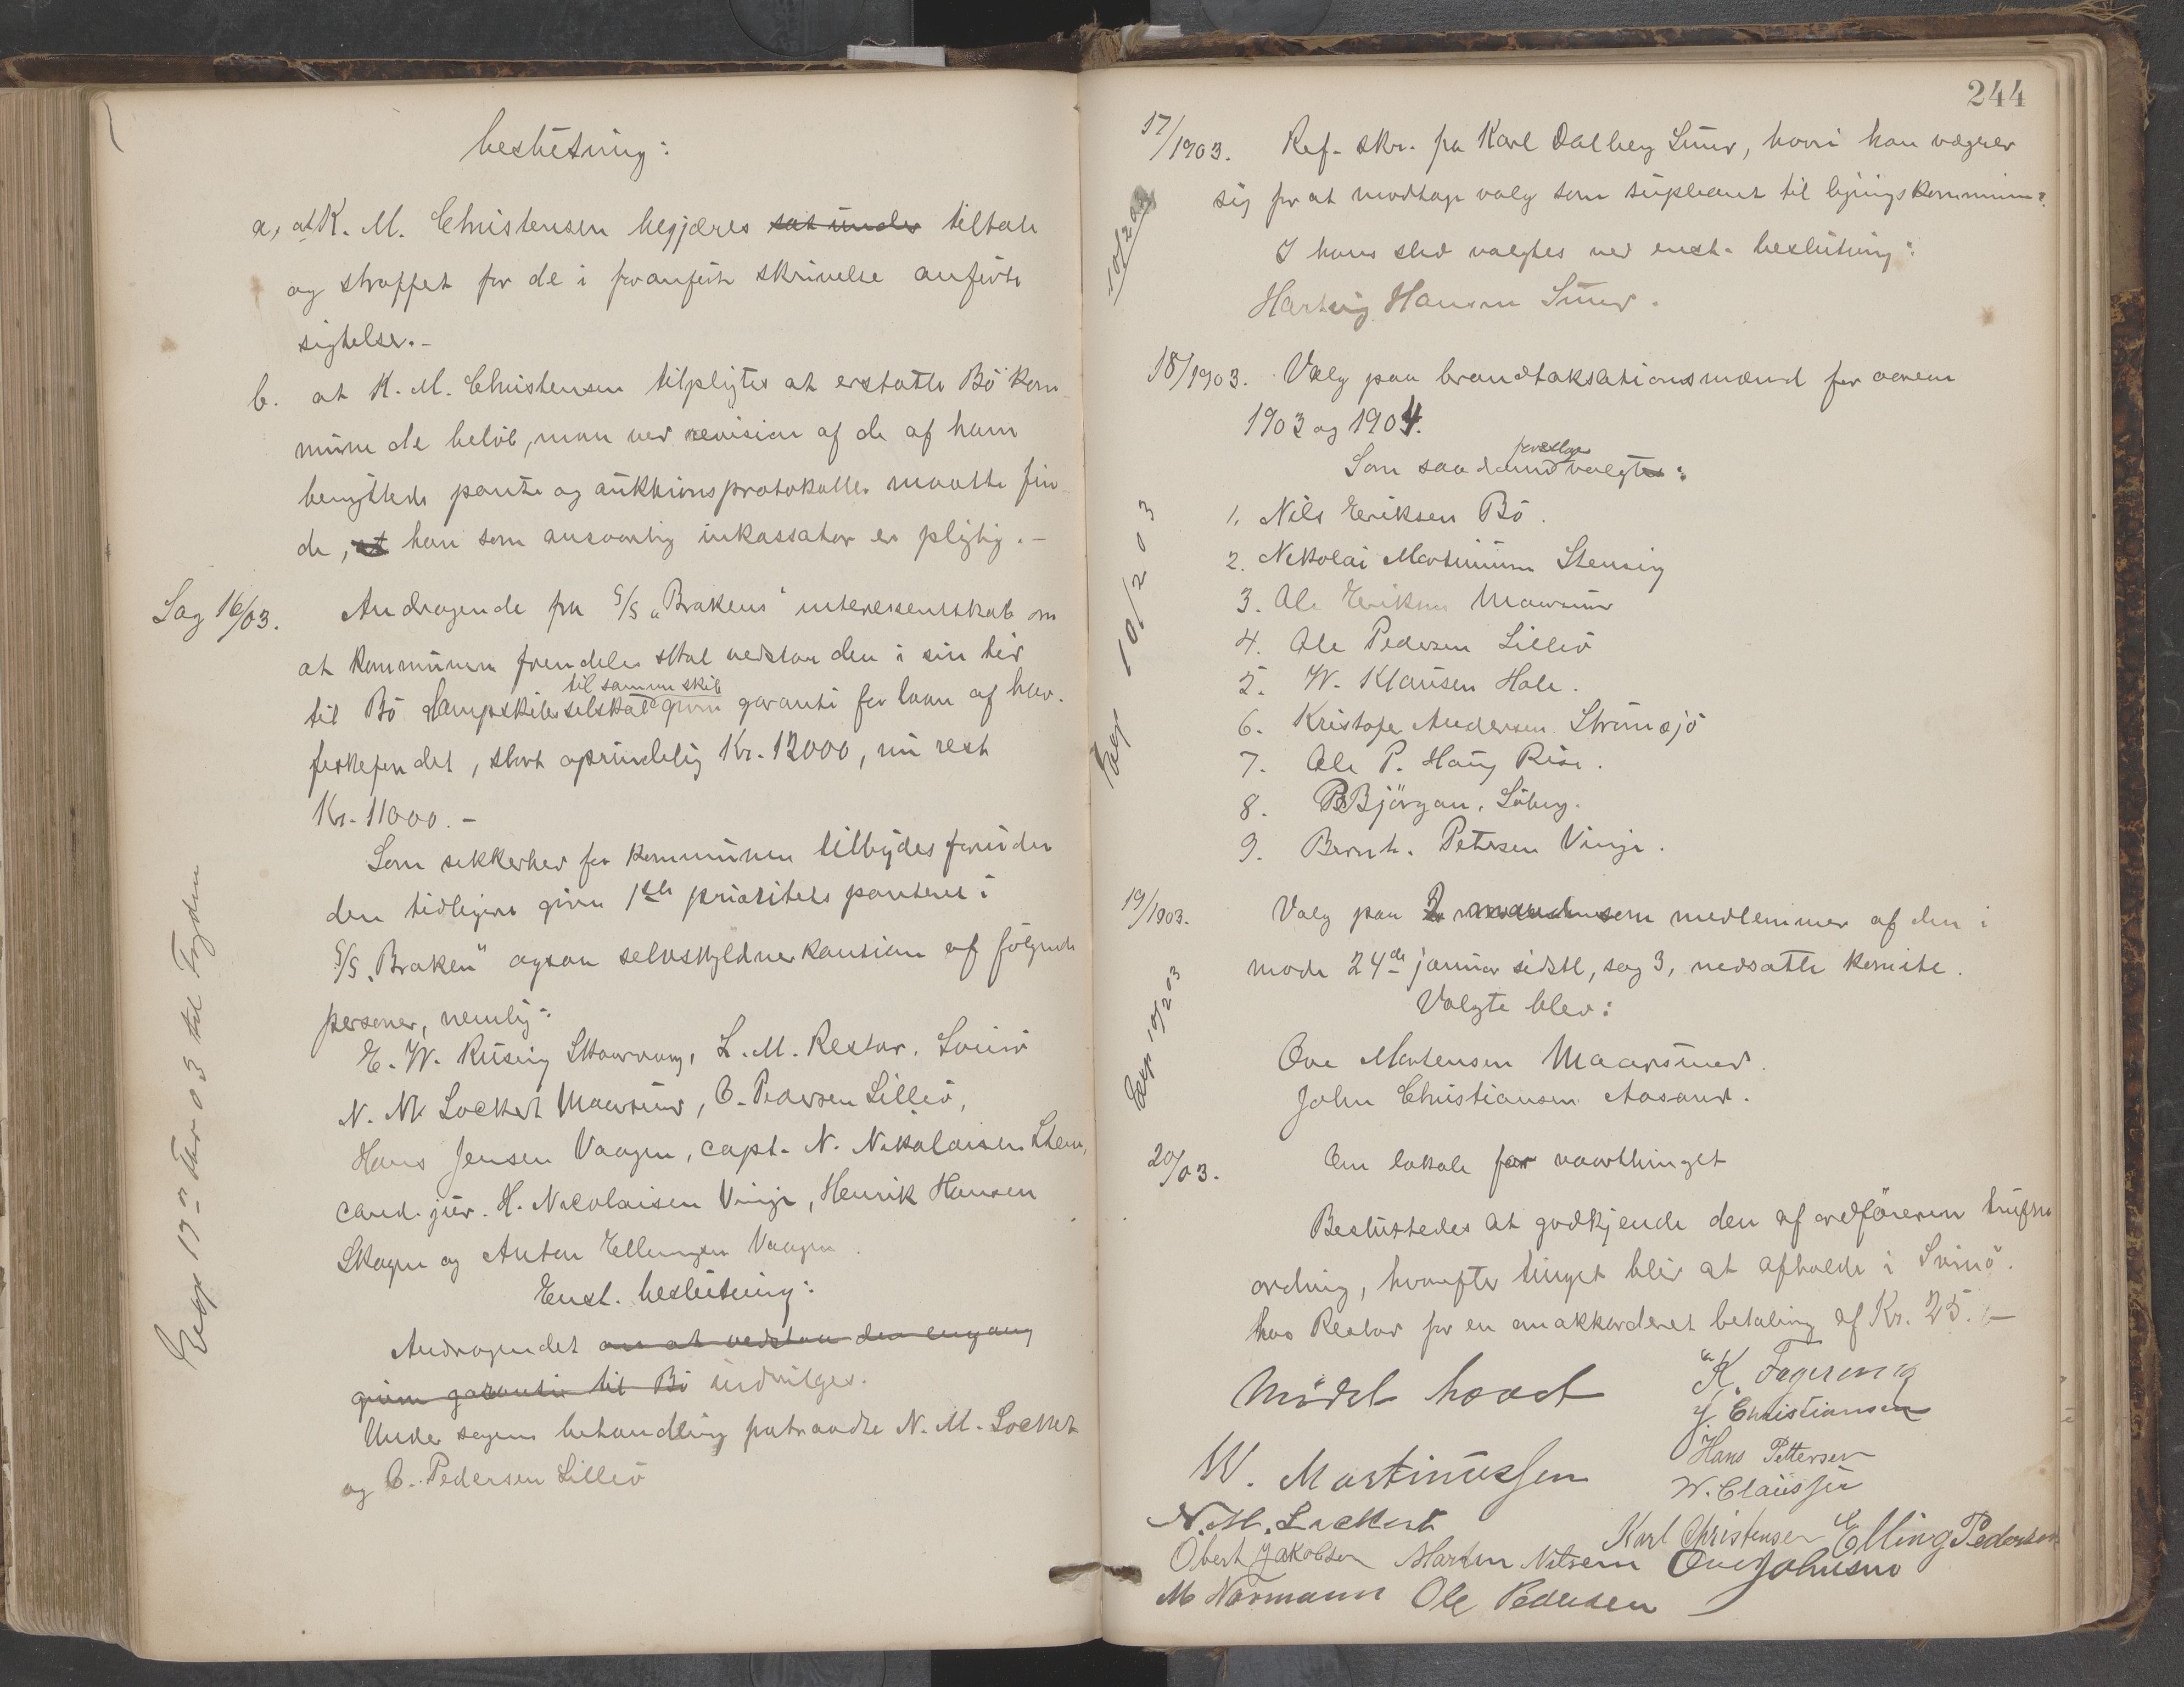 beslutning:
a, at K. M. Christensen begjæres sat under tiltale
og straffet for de i foranførte skrivelse anførte
sigtelser.-
b. at K. M. Christensen tilpligtes at erstatte Bö kom-
mune de beløb, man ved revision af de af ham
benyttede pante og auktionsprotokoller maatte fin-
de, at han som ansvarlig inkassator er pligtig.-
Sag 16/03. Andragende fra S/S "Brakens" interessentskab om
at kommunen fremdeles skal vedstaa den i sin tid
til samme skib
til Bö dampskibsselskab givne garanti for laan af hav-
fiskefondet, stort oprindelig Kr. 12000, nu rest
Kr. 11000.-
Som sikkerhed for kommunen tilbydes foruden
den tidligere givne 1ste prioritets panteret i
S/S "Braken" ogsaa selvskyldnerkaution af følgende
personer, nemlig:
E. W. Rusing Skaarvaag, L. M. Restar, Svinö
N. M. Lockert Maarsund, O. Pedersen Lillöi,
Hans Jensen Vaagen, capt. N. Nikolaisen Steen,
cand. jur. H. Nicolaisen Vinje, Henrik Hansen
Skagen og Anton Ellingsen Vaagen.
Enst. beslutning:
Andragendet om at vedstaa den engang
givne garanti til Bö indvilges.
Under sagens behandling fratraadte N. M. Lockert
og O. Pedersen Lilleö
Exp 19 Febr 03 til Fogden
244
17/1903. Ref. skr. fra Karl Dalberg Sund, hvori han vægrer
sig for at modtage valg som supleant til ligningskommiss.
I hans sted valgtes ved enst. beslutning:
Hartvig Hansen Sund.
10/2 03
18/1903. Valg paa brandtaksationsmænd for aarene
1903 og 1904.
foreslaaes
Som saadanne valgtes:
1. Nils Eriksen Bö.
2. Nikolai Martinussen Steinsvig
3. Ole Eriksen Maarsund
4. Ole Pedersen Lilleö
5. W. Klausen Hole.
6. Kristofer Andersen Strømsjö
7. Ole P. Haug Rise.
8. P. Björgan, Søberg.
9. Bernh. Petersen Vinje.
Exp 10/2 03
19/1903. Valg paa 2 mænd som medlemmer af den i
møde 24de januar sidstl, sag 3, nedsatte komite.
Valgte blev:
Ove Mortensen Maarsund.
John Christiansen Aasand.
Exp 10/2 03
20/03. Om lokale for vaarthinget
Besluttedes at godkjende den af ordføreren trufne
ordning, hvorefter tinget blir at afholde i Svinö.
hos Restar for en anakkorderet betaling af Kr. 25.-
Mödet hævet
K. Fagereng
J. Christiansen
W. Martinussen
Hans Pettersen
W. Claussen
N. M. Lockert
Karl Christensen Elling Pedersen
Obert Jakobsen Morten Nilsen Ove Johnsen
M Normann Ole Pedersen